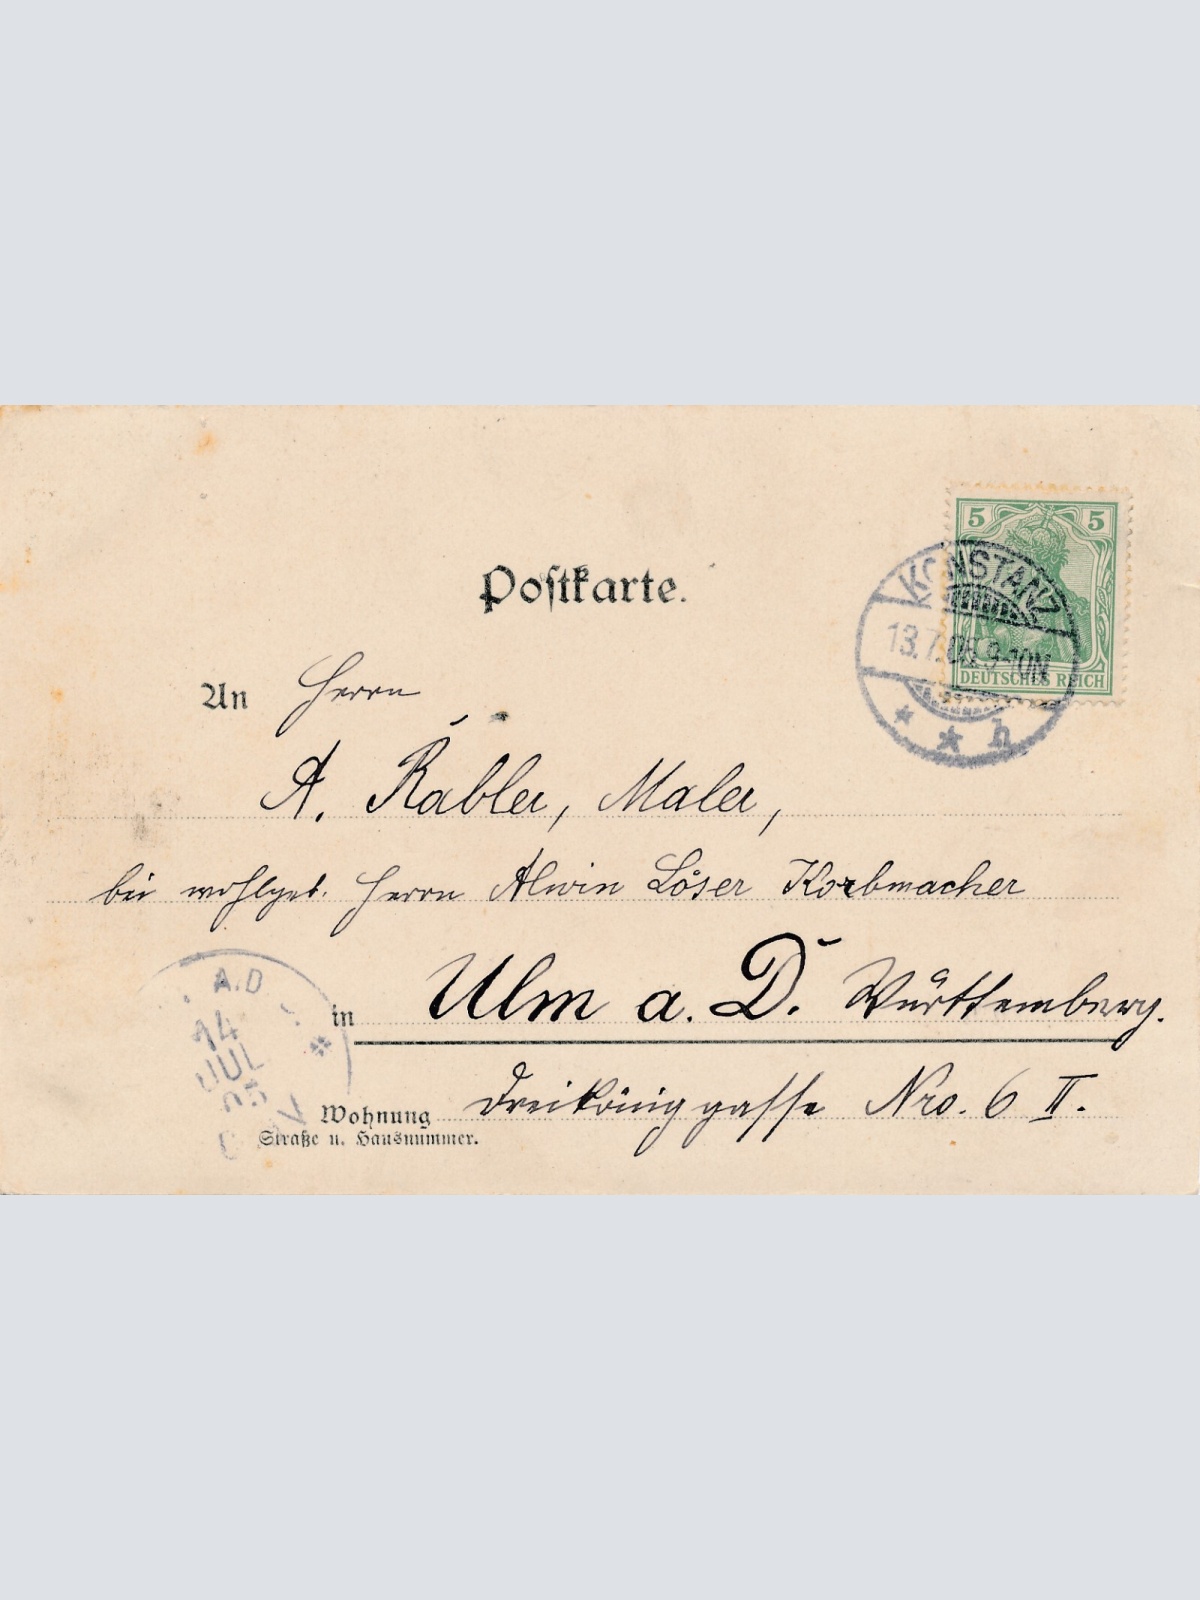 5 5
DEUTSCHES REICH
KONSTANZ
13.7.05. 9-10N
* * h
Postkarte.
An Herrn
A. Rabler, Maler,
bei wohlgeb. Herrn Alwin Löser Korbmacher
A.D
14
JUL
05
in Ulm a. D. Württemberg.
Wohnung Dreiköniggasse Nro. 6 II.
Straße u. Hausnummer.